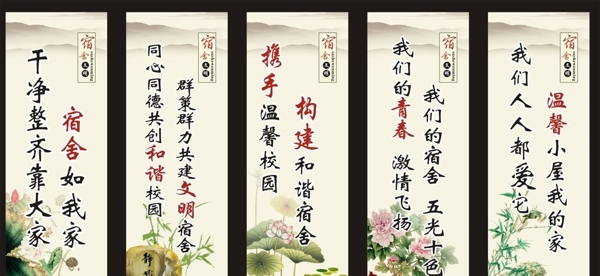 宿舍文明
宿舍如我家
干净整齐靠大家
宿舍文明
群策群力共建文明宿舍
同心同德共创和谐校园
静
宿舍文明
构建和谐宿舍
携手温馨校园
宿舍文明
我们的宿舍 五光十色
我们的青春 激情飞扬
宿舍文明
温馨小屋我的家
我们人人都爱它